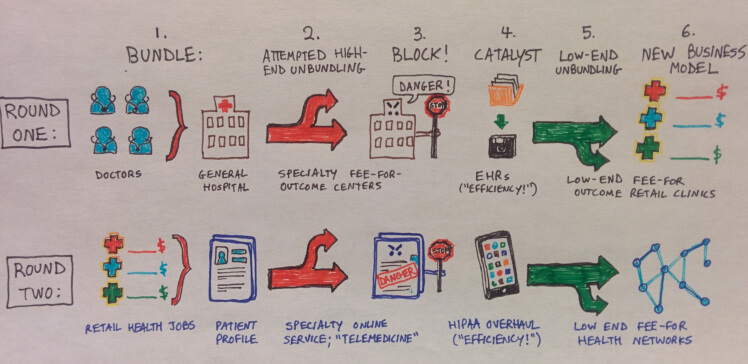 1.
2.
3.
4.
5.
6.
BUNDLE:
ATTEMPTED HIGH-
END UNBUNDLING
BLOCK!
CATALYST
LOW-END
UNBUNDLING
NEW BUSINESS
MODEL
ROUND
ONE:
DOCTORS
GENERAL
HOSPITAL
SPECIALTY FEE-FOR-
OUTCOME CENTERS
DANGER!
STOP
EHRs
("EFFICIENCY!")
LOW-END FEE-FOR
OUTCOME RETAIL CLINICS
$
$
$
ROUND
TWO:
$
$
$
RETAIL HEALTH JOBS
PATIENT
PROFILE
SPECIALTY ONLINE
SERVICE; "TELEMEDICINE"
DANGER
STOP
HIPAA OVERHAUL
("EFFICIENCY!")
LOW END FEE-FOR
HEALTH NETWORKS